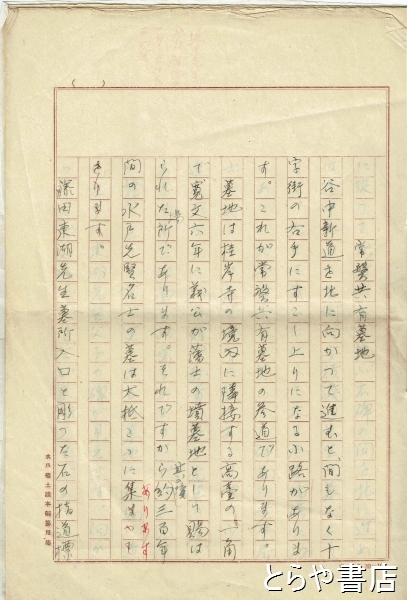 常磐共有墓地
谷中新道を北に向かつて進むと、間もなく十
字街の右手にすこし上りになる小路がありま
す。これが常磐共有墓地の参道であります。
墓地は桂岸寺の境内に隣接する高臺の一角
で寛文六年に義公が藩士の墳墓地として賜は
られた所であります。それですから約三百年
其の後
間の水戸先賢名士の墓は大抵ここに集まつて
ありあす
きります。
藤田東湖先生墓所入口と彫つた石の指道標
水戸郷土読本編纂用紙
とらや書店